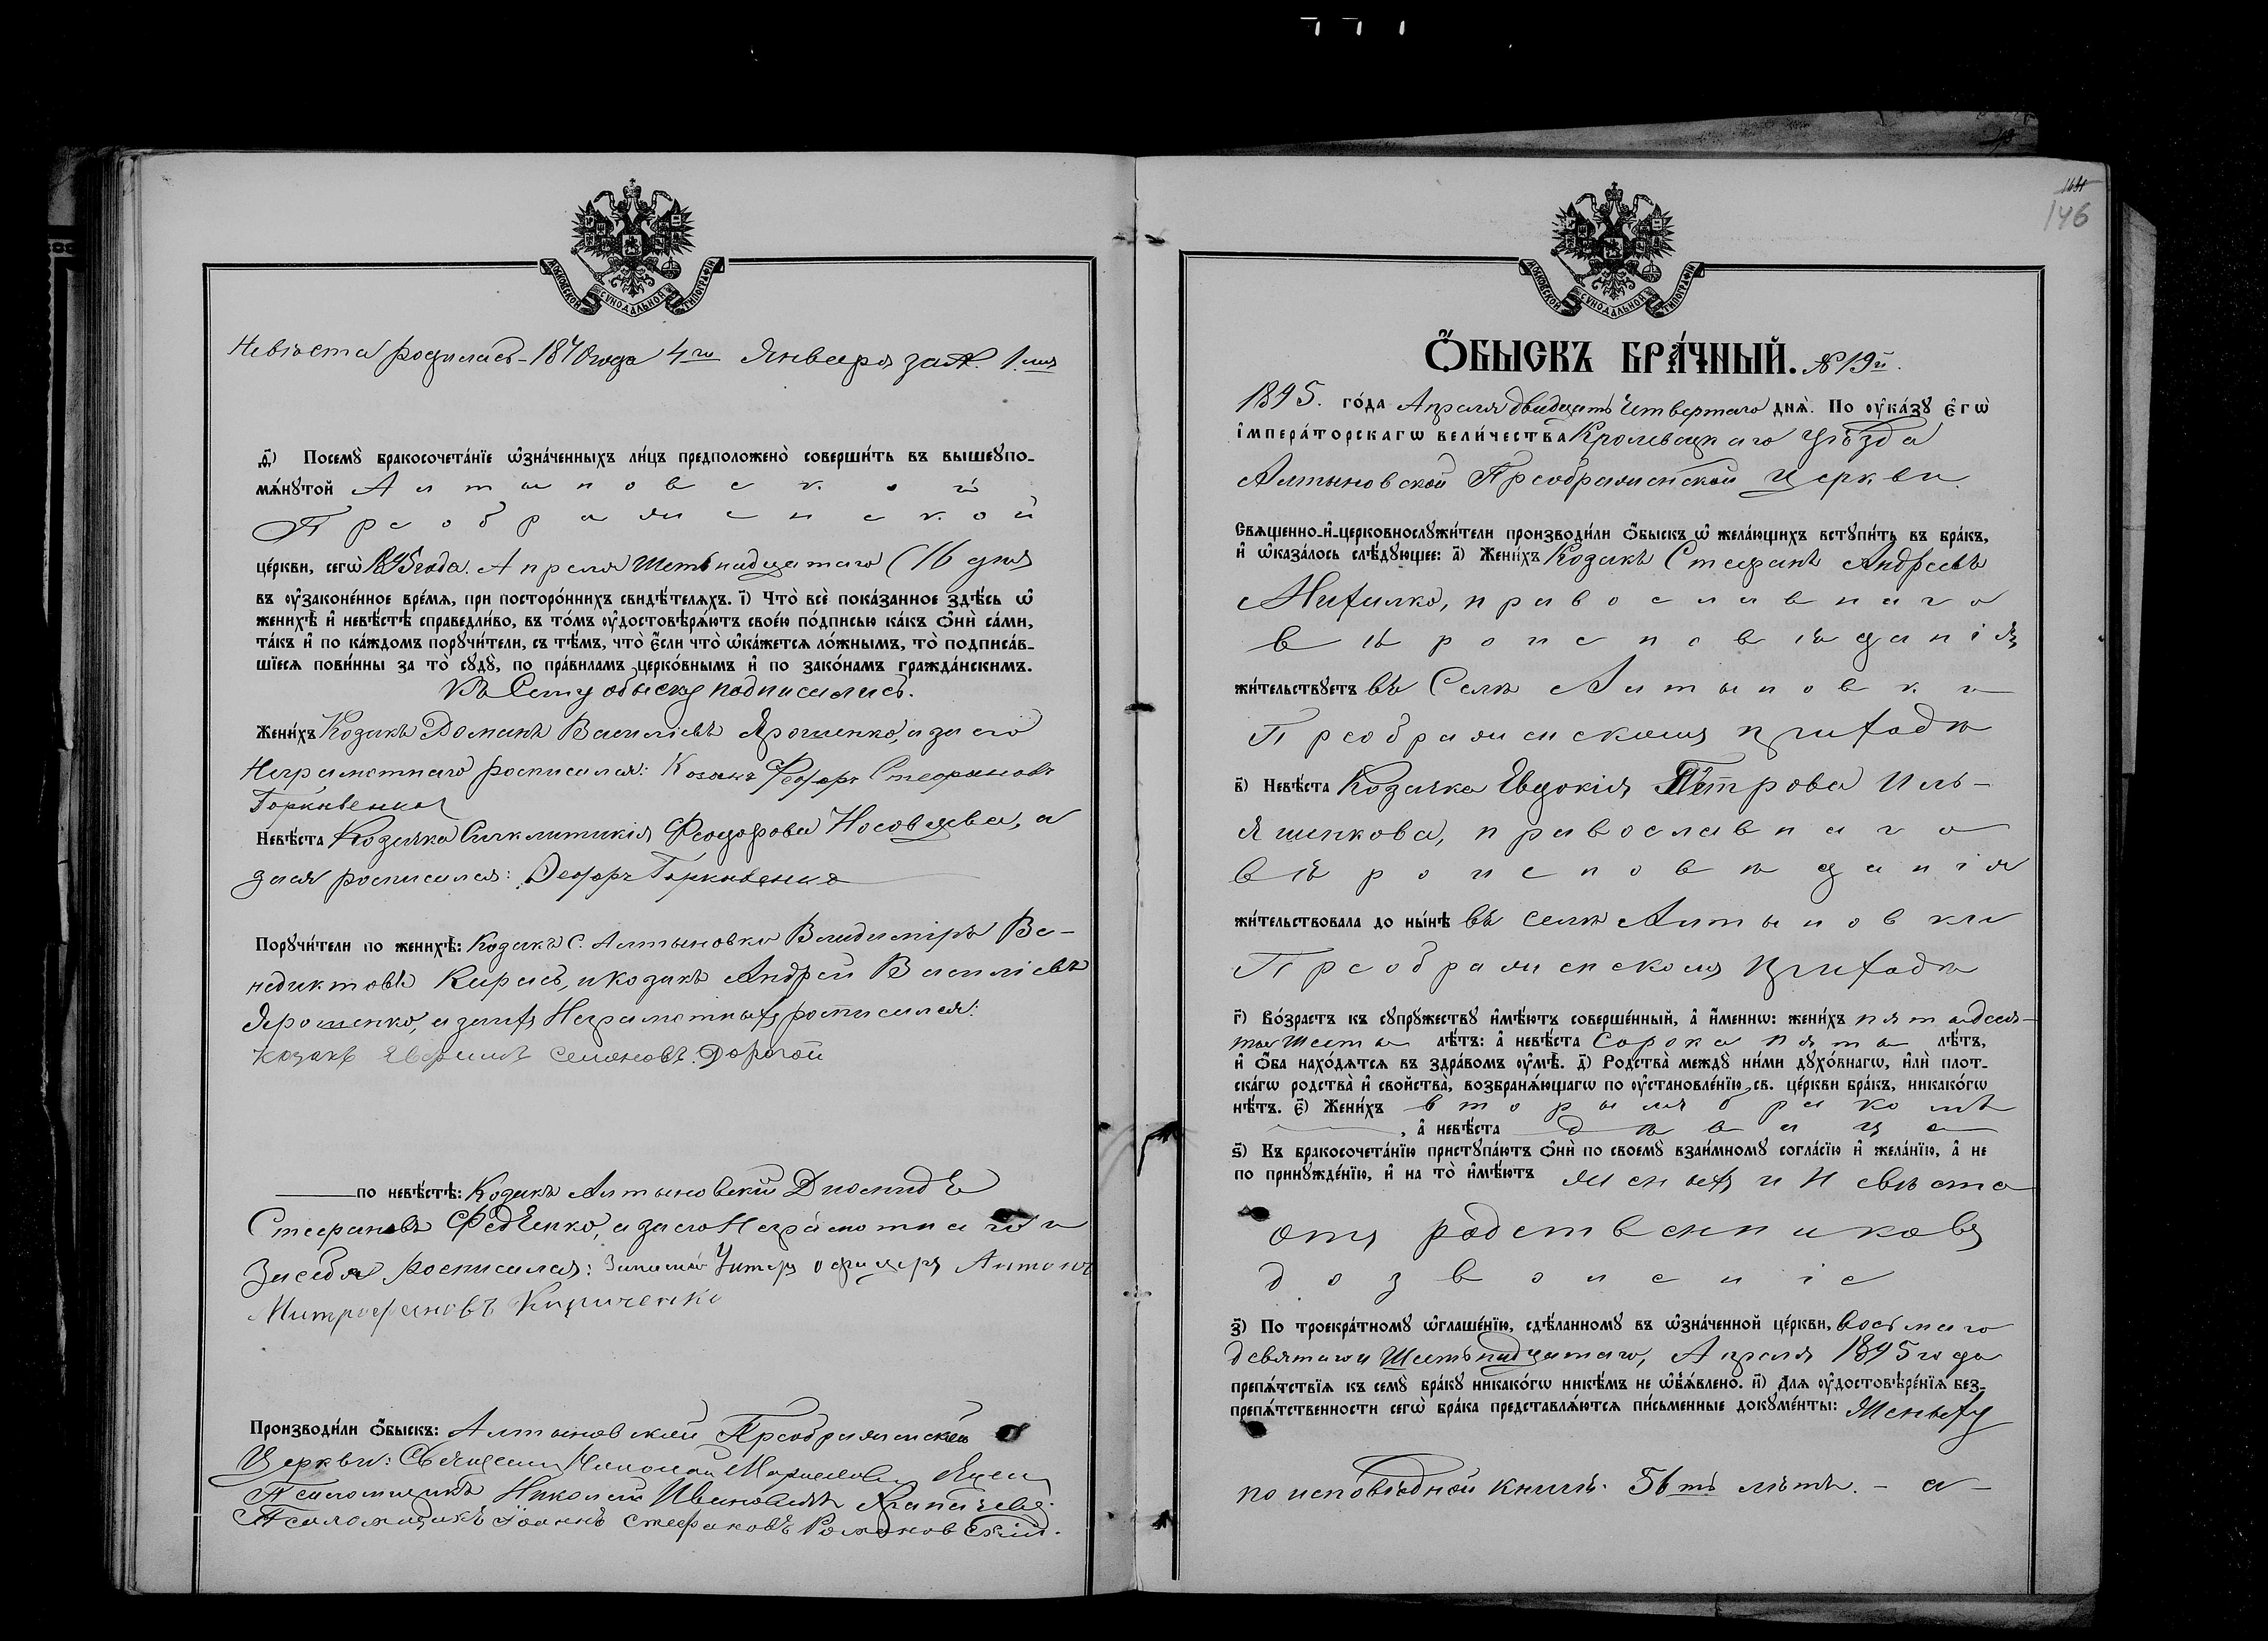 МОСКОВСКОЙ СУНОДАЛЬНОЙ ТИПОГРАФІИ
Невѣста родилась - 1870 года 4го Января за №. 1.мъ
д҃і) Посемꙋ̀ бракосочета́нїе ѡ҆зна́ченныхъ ли́цъ предположено̀ соверши́ть въ вышеꙋпо-
мѧ́нꙋтой Алтыновской
Преображенской
це́ркви, сегѡ̀ 1895 года. Апреля Шестьнадцатаго (16 дня
въ ᲂу҆зако́не́нное вре́мѧ, при посторо́ннихъ свидѣ́телѧхъ. і҃) Что̀ всѐ пока́занное здѣ́сь ѡ҆
женихѣ̀ и҆ невѣ́стѣ справедли́во, въ то́мъ ᲂу҆достовѣрѧ́ютъ свое́ю по́дписью ка́къ ѻ҆нѝ са́ми,
та́къ и҆ по ка́ждомъ порꙋчи́тели, съ тѣ́мъ, что̀ є҆́сли что̀ ѡ҆ка́жетсѧ ло́жнымъ, то̀ подписа́в-
шїесѧ пови́нны за то̀ сꙋдꙋ̀, по пра́виламъ церко́внымъ и҆ по зако́намъ гражда́нскимъ.
Къ Сему обыску подписались.
Жени́хъ Козакъ Доманъ Василіевъ Ярошенко, а за его
Неграмотнаго росписался: Козакъ Федоръ Стефановъ
Невѣ́ста Козачка Синклитикія Феодорова Носовцева, а
за ея росписался: Федоръ
Порꙋчи́тели по женихѣ̀: Козакъ С. Алтыновки Владиміръ Ве-
недиктовъ Кирьсь, и козакъ Андрей Василіевъ
Ярошенко, а за ихъ Неграмотныхъ росписался:
козакъ Семоновъ Дорогой
по невѣ́стѣ: Козакъ Алтыновскій Диомидъ
Стефановъ Федченко, а за его Неграмотнаго и
За себя росписался: Запасной Унтеръ офицеръ Антонъ
Митрофановъ Кириченко
Производи́ли ѻ҆́быскъ: Алтыновской Преображенской
Церкви: Священ. Николай
Псаломщикъ Николай Ивановичъ
Псаломщикъ Іоаннъ Стефановъ Романовскій.
146
МОСКОВСКОЙ СУНОДАЛЬНОЙ ТИПОГРАФІИ
Ѻ҆́БЫСКЪ БРА́ЧНЫЙ. № 19й.
1895. го́да Апреля двадцать Четвертаго днѧ̀. По ᲂу҆ка́зꙋ є҆гѡ̀
і҆мпера́торскагѡ вели́чества Кролевецкаго уѣзда
Алтыновской Преображенской Церкви.
Свѧщенно-и҆-церковнослꙋжи́тели производи́ли ѻ҆́быскъ ѡ҆ жела́ющихъ встꙋпи́ть въ бра́къ,
и҆ ѡ҆каза́лось слѣ́дꙋющее: а҃) Жени́хъ Козакъ Стефанъ Андреевъ
Михилко, православнаго
вѣроисповѣданія
жи́тельствꙋетъ въ Селѣ Алтыновки
Преображенскомъ приходѣ
в҃) Невѣ́ста Козачка Евдокія Петрова Иль-
яшенкова, православнаго
вѣроисповѣданія
жи́тельствовала до ны́нѣ въ селѣ Алтыновки
Преображенскомъ приходѣ
г҃) Во́зрастъ къ сꙋпрꙋ́жествꙋ и҆мѣ́ютъ соверше́нный, а҆ и҆́меннѡ: жени́хъ пятьдесят-
ты Шести лѣ́тъ: а҆ невѣ́ста Сорока пяти лѣ́тъ,
и҆ ѻ҆́ба нахо́дѧтсѧ въ здра́вомъ ᲂу҆мѣ̀. д҃) Родства̀ междꙋ̀ ни́ми дꙋхо́внагѡ, и҆лѝ плот-
ска́гѡ родства̀ и҆ свойства̀, возбранѧ́ющагѡ по ᲂу҆становле́нїю св. це́ркви бра́къ, никако́гѡ
нѣ́тъ. є҃) Жени́хъ вторымъ бракомъ
, а҆ невѣ́ста дѣвица
ѕ҃) Къ бракосочета́нїю пристꙋпа́ютъ ѻ҆нѝ по своемꙋ̀ взаи́мномꙋ согла́сїю и҆ жела́нїю, а҆ не
по принꙋжде́нїю, и҆ на то̀ и҆мѣ́ютъ Женихъ и Невѣста
отъ родственниковъ
дозволеніе
з҃) По троекра́тномꙋ ѡ҆глаше́нїю, сдѣ́ланномꙋ въ ѡ҆зна́ченной це́ркви, восьмаго
девятаго и Шестьнадцатаго, Апреля 1895 года
препѧ́тствїѧ къ семꙋ̀ бра́кꙋ никако́гѡ никѣ́мъ не ѡ҆б̾ѧ́влено. и҃) Длѧ ᲂу҆достовѣре́нїѧ без-
препѧ́тственности сегѡ̀ бра́ка представлѧ́ютсѧ пи́сьменные докꙋме́нты: Жениху
по исповѣдной книги. 56ть лѣтъ. - а -